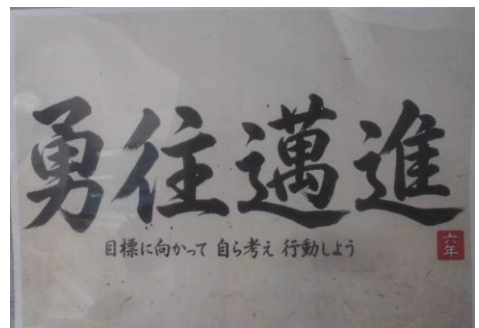 勇往邁進
目標に向かって 自ら考え 行動しよう
六年